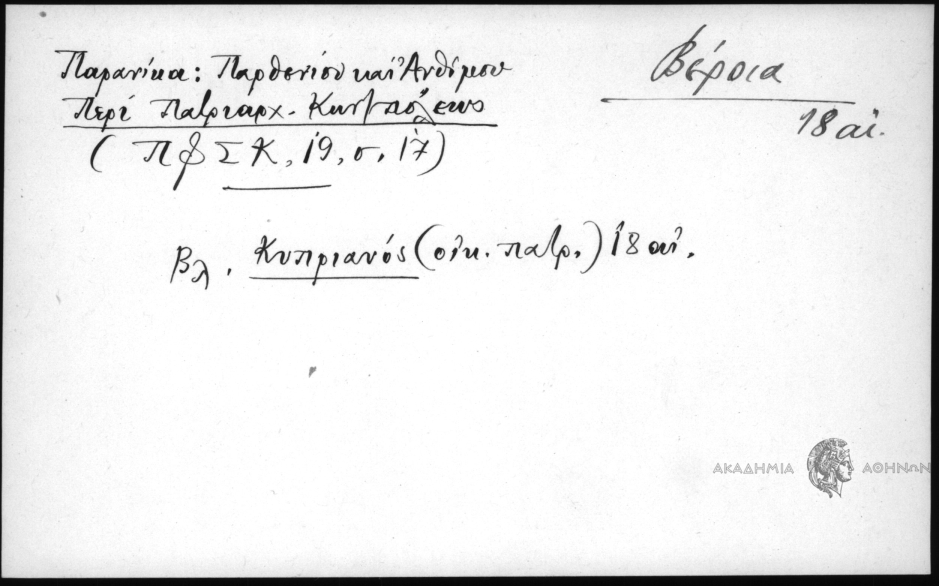 Βέροια
18 αἰ.
Παρανίκα: Παρθενίου καὶ Ἀνθίμου
Περὶ Πατριαρχ. Κων/πόλεως
(ΠΦΣΚ, 19, σ. 17)
Βλ. Κυπριανός (οἰκ. πατρ.) 18 αἰ.
ΑΚΑΔΗΜΙΑ ΑΘΗΝΩΝ